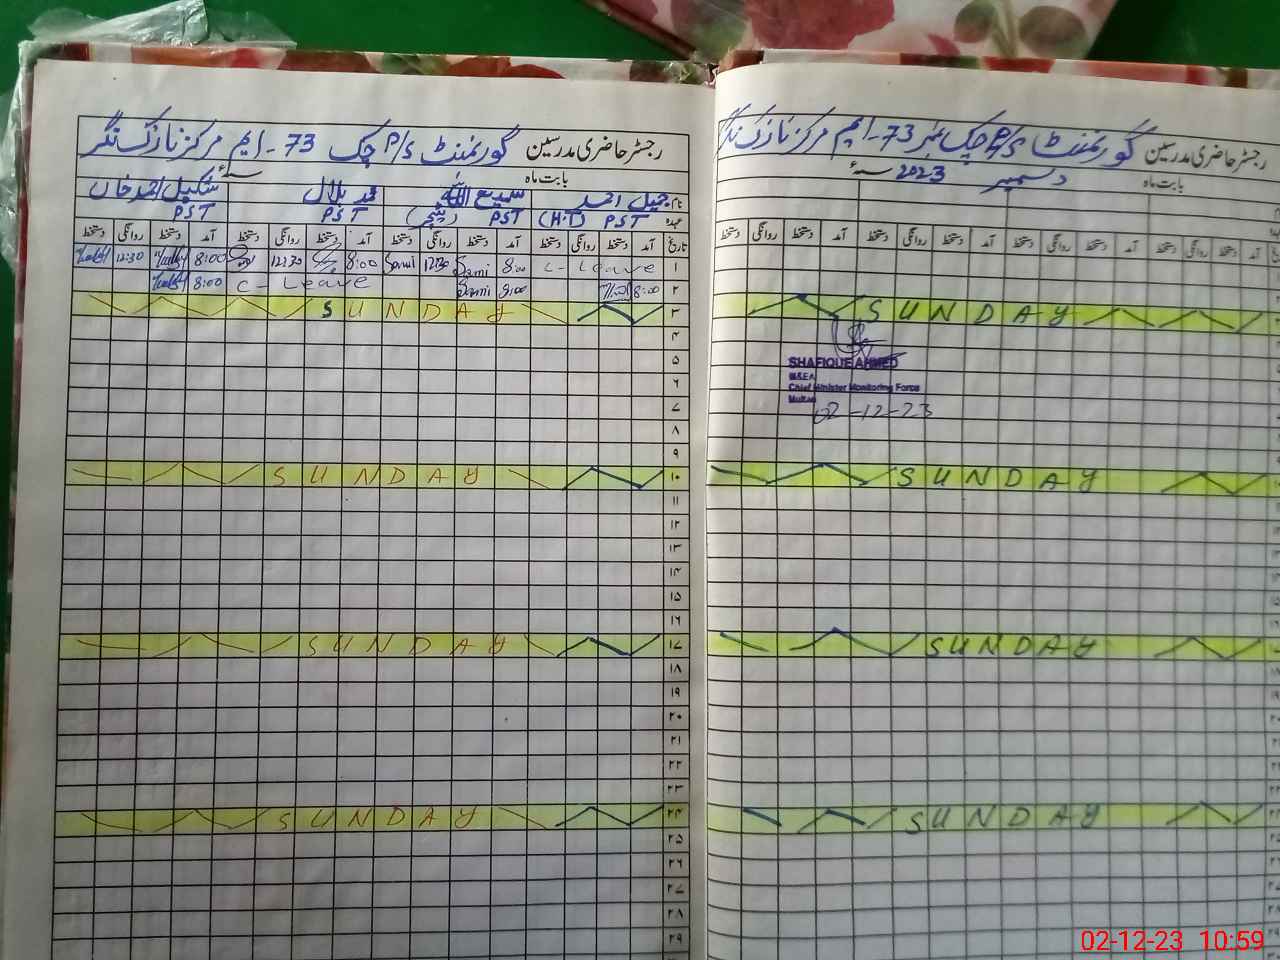 رجسٹر حاضری مدرسین گورنمنٹ P/S چک 73 ۔ ایم مرکز نازک نگر
بابت ماہ سنہ ء
نام جمیل احمد سمیع اللہ محمد بلال شکیل احمد خان
عہدہ PST (H.T) PST (ٹیچر) PST PST
تاریخ آمد دستخط روانگی دستخط آمد دستخط روانگی دستخط آمد دستخط روانگی دستخط آمد دستخط روانگی دستخط
۱ C - Leave 8:00 Sami 12:30 Sami 8:00 12:30 8:00 12:30
۲ 8:00 8:00 Sami C - Leave 8:00
۳ SUNDAY
۴
۵
۶
۷
۸
۹
۱۰ SUNDAY
۱۱
۱۲
۱۳
۱۴
۱۵
۱۶
۱۷ SUNDAY
۱۸
۱۹
۲۰
۲۱
۲۲
۲۳
۲۴ SUNDAY
۲۵
۲۶
۲۷
۲۸
۲۹
رجسٹر حاضری مدرسین گورنمنٹ P/S چک نمبر 73 ۔ ایم مرکز نازک نگر
بابت ماہ دسمبر 2023 سنہ ء
آمد دستخط روانگی دستخط آمد دستخط روانگی دستخط آمد دستخط روانگی دستخط آمد دستخط روانگی دستخط
SUNDAY
SHAFIQUE AHMED
M&EA
Chief Minister Monitoring Force
Multan
02-12-23
SUNDAY
SUNDAY
SUNDAY
02-12-23 10:59